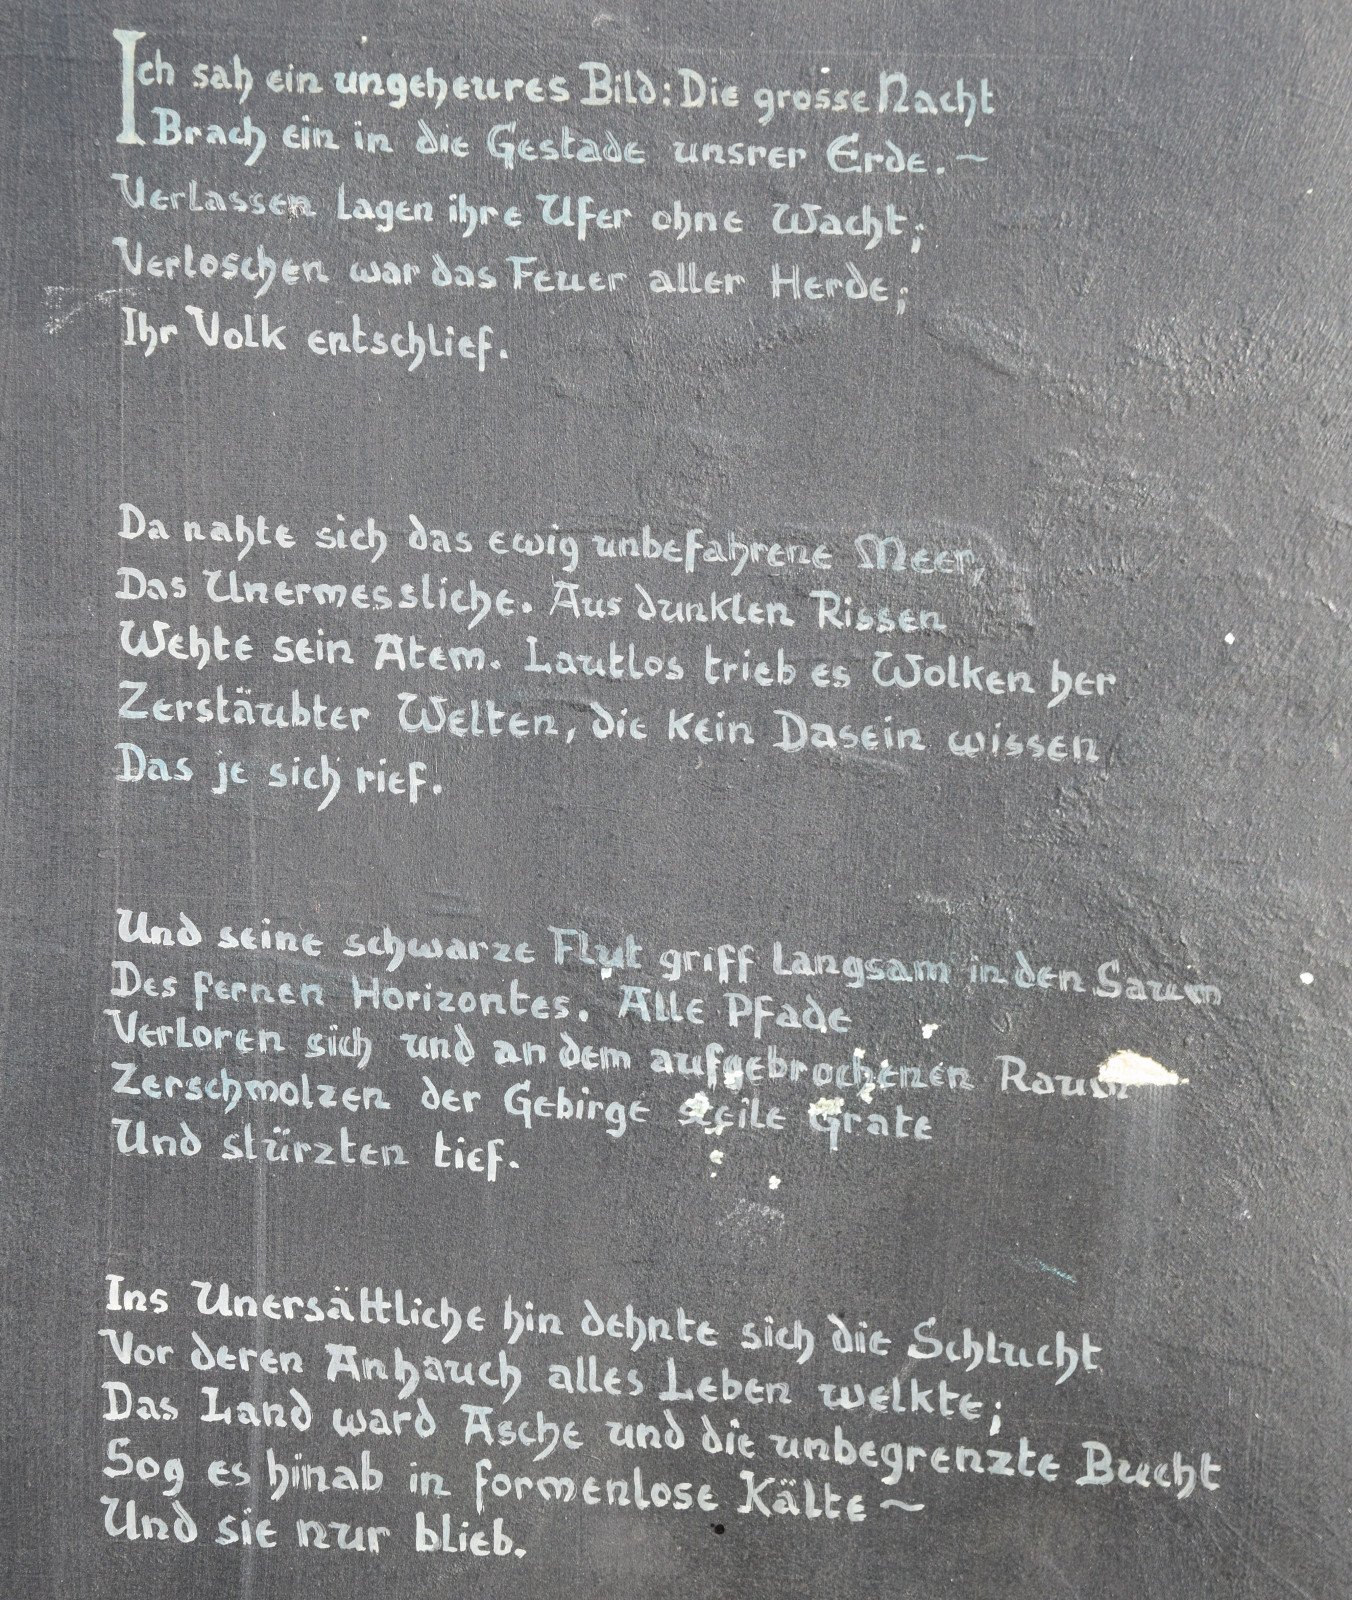 Ich sah ein ungeheures Bild: Die grosse Nacht
Brach ein in die Gestade unsrer Erde. ~
Verlassen lagen ihre Ufer ohne Wacht;
Verloschen war das Feuer aller Herde;
Ihr Volk entschlief.
Da nahte sich das ewig unbefahrene Meer,
Das Unermessliche. Aus dunklen Rissen
Wehte sein Atem. Lautlos trieb es Wolken her
Zerstäubter Welten, die kein Dasein wissen
Das je sich rief.
Und seine schwarze Flut griff langsam in den Saum
Des fernen Horizontes. Alle Pfade
Verloren sich und an dem aufgebrochenen Raum
Zerschmolzen der Gebirge steile Grate
Und stürzten tief.
Ins Unersättliche hin dehnte sich die Schlucht
Vor deren Anhauch alles Leben welkte;
Das Land ward Asche und die unbegrenzte Bucht
Sog es hinab in formenlose Kälte ~
Und sie nur blieb.